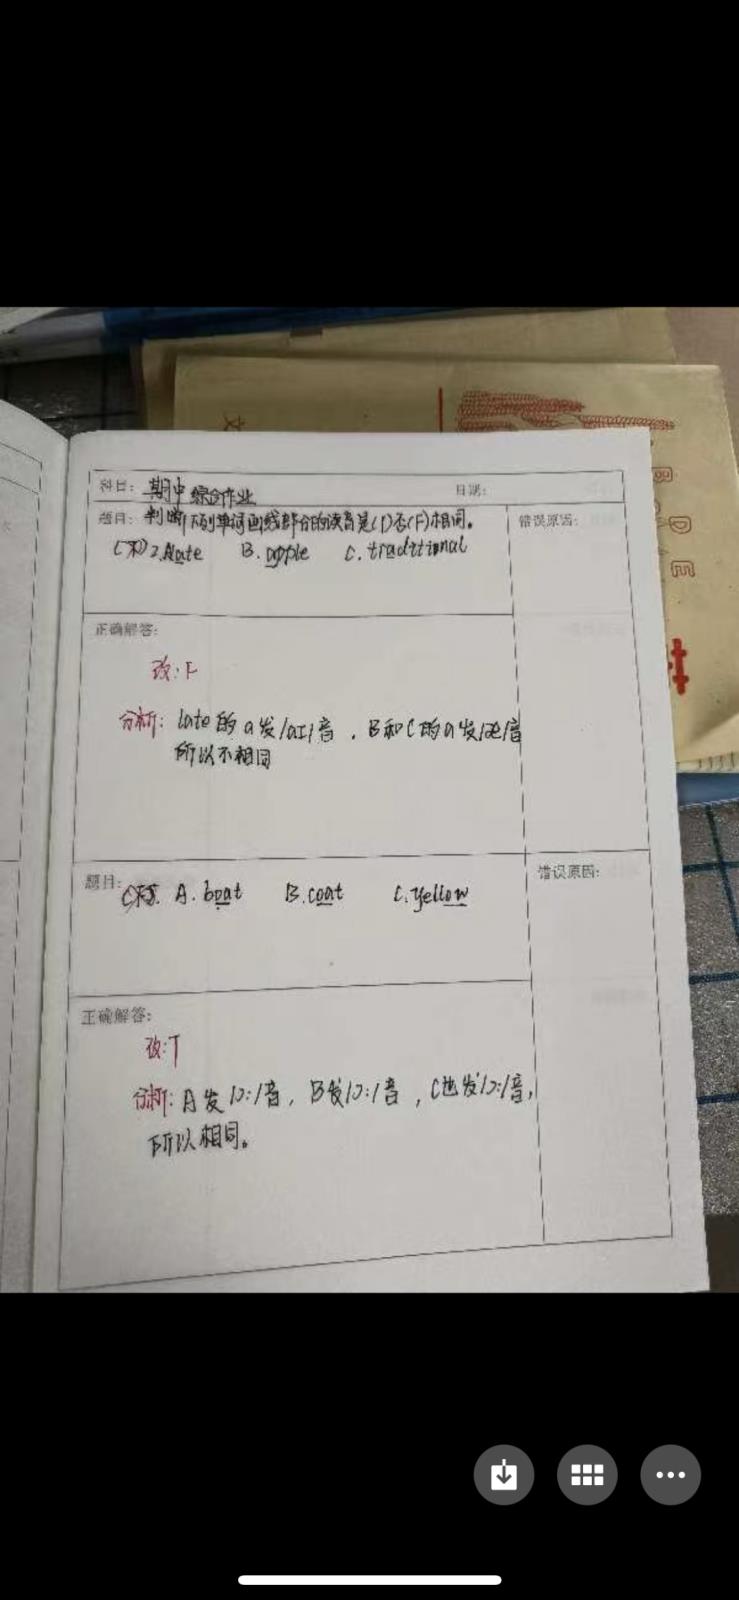 科目: 期中 综合作业
日期:
题目: 判断下列单词画线部分的读音是(T)否(F)相同。
错误原因:
2. A. late B. apple C. traditional
正确解答:
改: F
分析: late的a发/aI/音, B和C的a发/æ/音
所以不相同
题目:
错误原因:
A. boat B. coat C. yellow
正确解答:
改: T
分析: A发/ɔ:/音, B发/ɔ:/音, C也发/ɔ:/音,
所以相同。
文
B
D
E